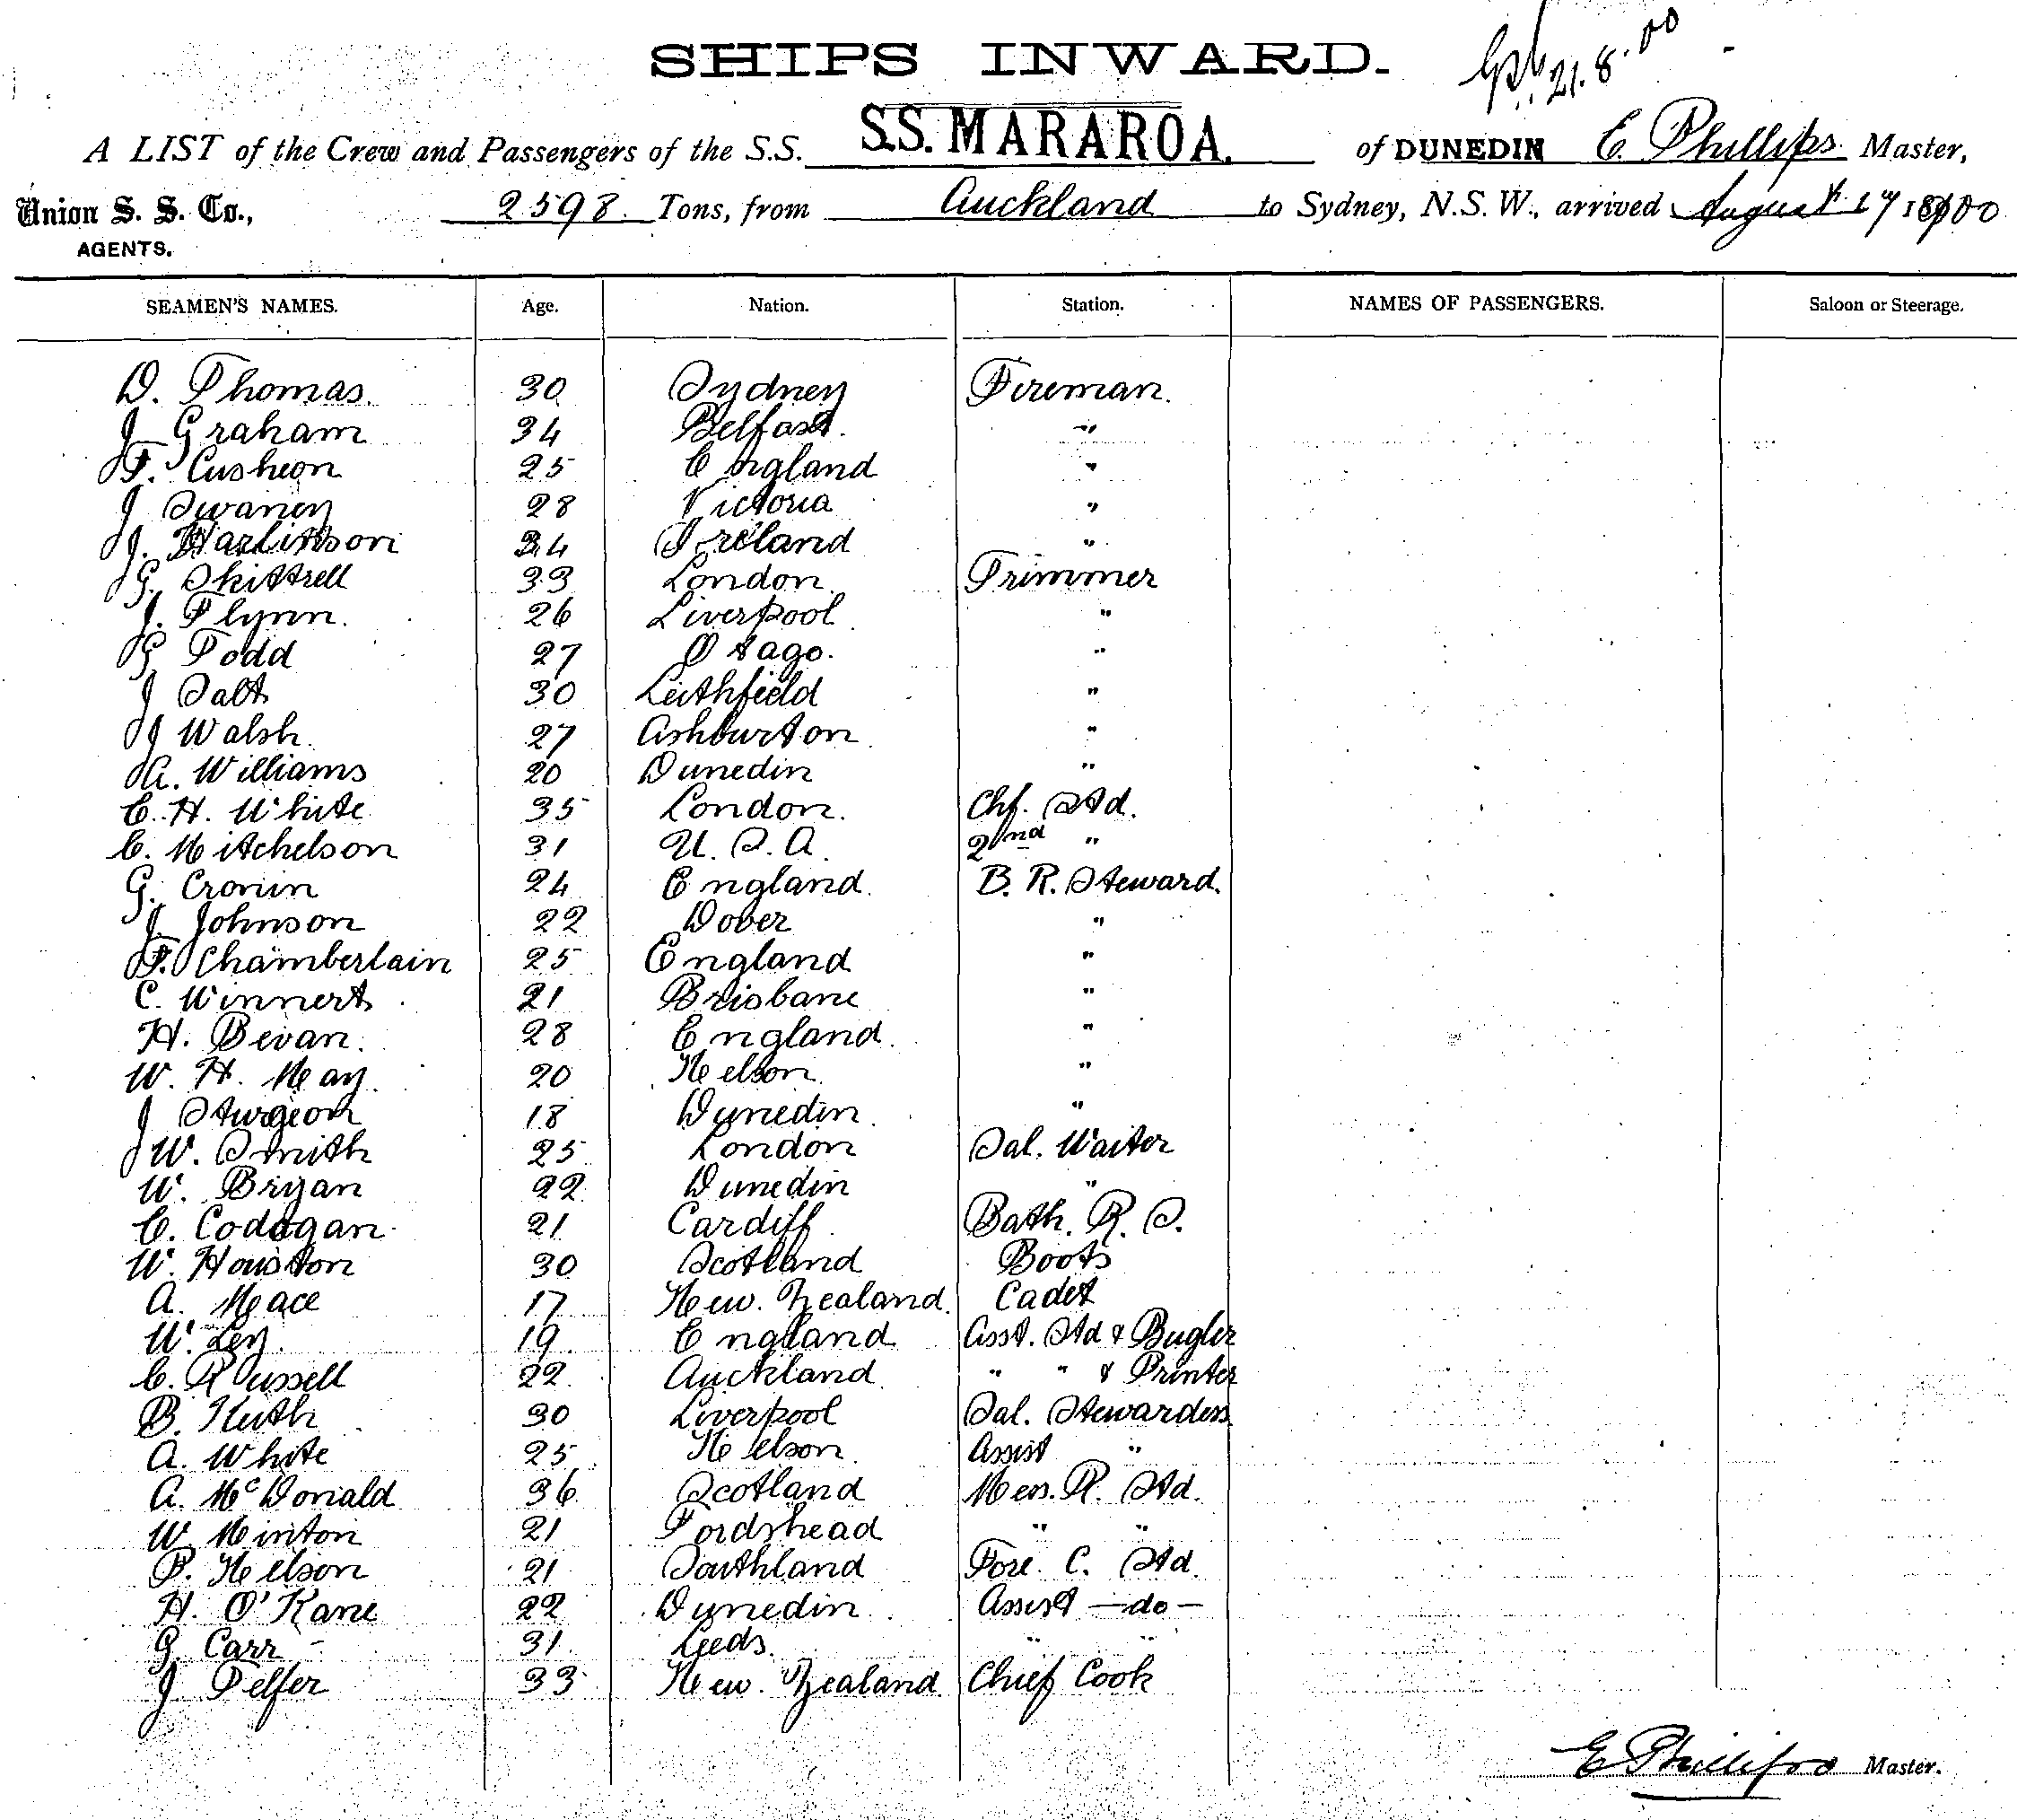 SHIPS INWARD.
21.8.00
A LIST of the Crew and Passengers of the S.S. S.S. MARAROA. of DUNEDIN E. Phillips Master,
Union S. S. Co., 2598 Tons, from Auckland to Sydney, N.S.W., arrived August 17 1900
AGENTS.
SEAMEN'S NAMES. Age. Nation. Station. NAMES OF PASSENGERS. Saloon or Steerage.
D. Thomas 30 Sydney Fireman.
J Graham 34 Belfast. "
F. Cusheon 25 England "
J Swaney 28 Victoria "
J. 34 Ireland "
G. Skittrell 33 London Trimmer
J. Flynn. 26 Liverpool "
G Todd 27 Otago. "
J Salt 30 Leithfield "
J Walsh 27 Ashburton "
A. Williams 20 Dunedin "
C. H. White 35 London. Chf. Std.
C. Mitchelson 31 U.S.A. 2nd "
G. Cronin 24 England. B. R. Steward.
J. Johnson 22 Dover "
F. Chamberlain 25 England "
C. Winnert 21 Brisbane "
H. Bevan. 28 England. "
W. H. May. 20 Nelson "
J Sturgeon 18 Dunedin "
W. Smith 25 London Sal. Waiter
W. Bryan 22 Dunedin "
C. Codogan 21 Cardiff Bath. R. S.
W. Houston 30 Scotland Boots
A. Mace 17 New. Zealand Cadet
W. Ley 19 England Asst. Std & Bugler
C. Russell 22 Auckland " " & Printer
B. Keith 30 Liverpool Sal. Stewardess
A. White 25 Nelson Assist "
A. McDonald 36 Scotland Mess. R. Std.
W Minton 21 Fordshead " "
P. Nelson 21 Southland Fore. C. Std.
H. O'Kane 22 Dunedin Assist —do—
G Carr 31 Leeds " "
J Telfer 33 New. Zealand Chief Cook
E Phillips Master.